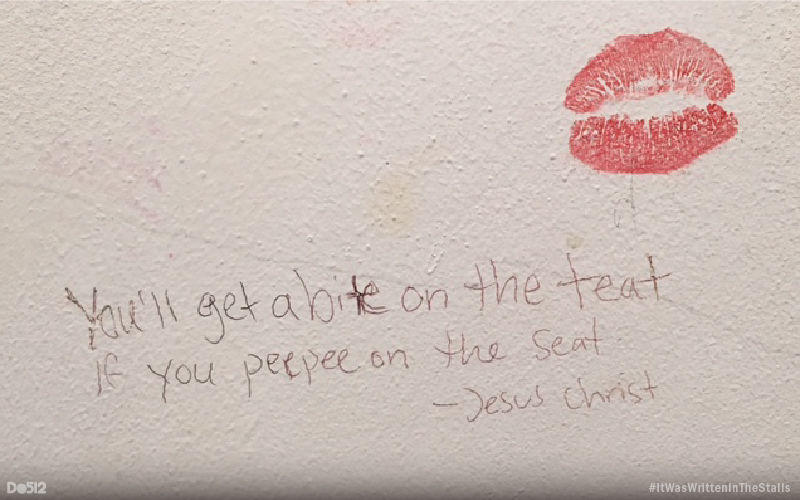 You'll get a bite on the teat
If you peepee on the seat
-Jesus Christ
Do512
#ItWasWrittenInTheStalls